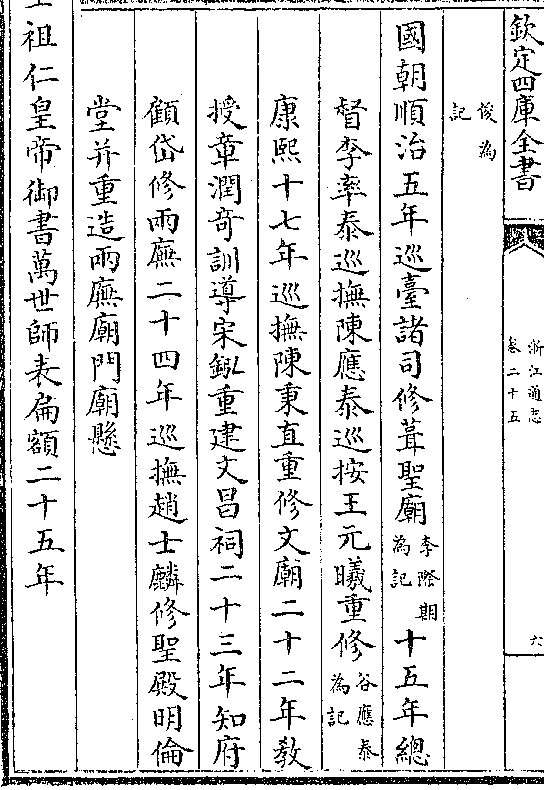 欽定四庫全書
浙江通志
卷二十五
六
俊為
記
國朝順治五年巡臺諸司修葺聖廟李際期為記十五年總
督李率泰巡撫陳應泰巡按王元曦重修谷應泰為記
康熙十七年巡撫陳秉直重修文廟二十二年教
授章潤奇訓導宋釚重建文昌祠二十三年知府
顧岱修兩廡二十四年巡撫趙士麟修聖殿明倫
堂并重造兩廡廟門廟懸
祖仁皇帝御書萬世師表扁額二十五年